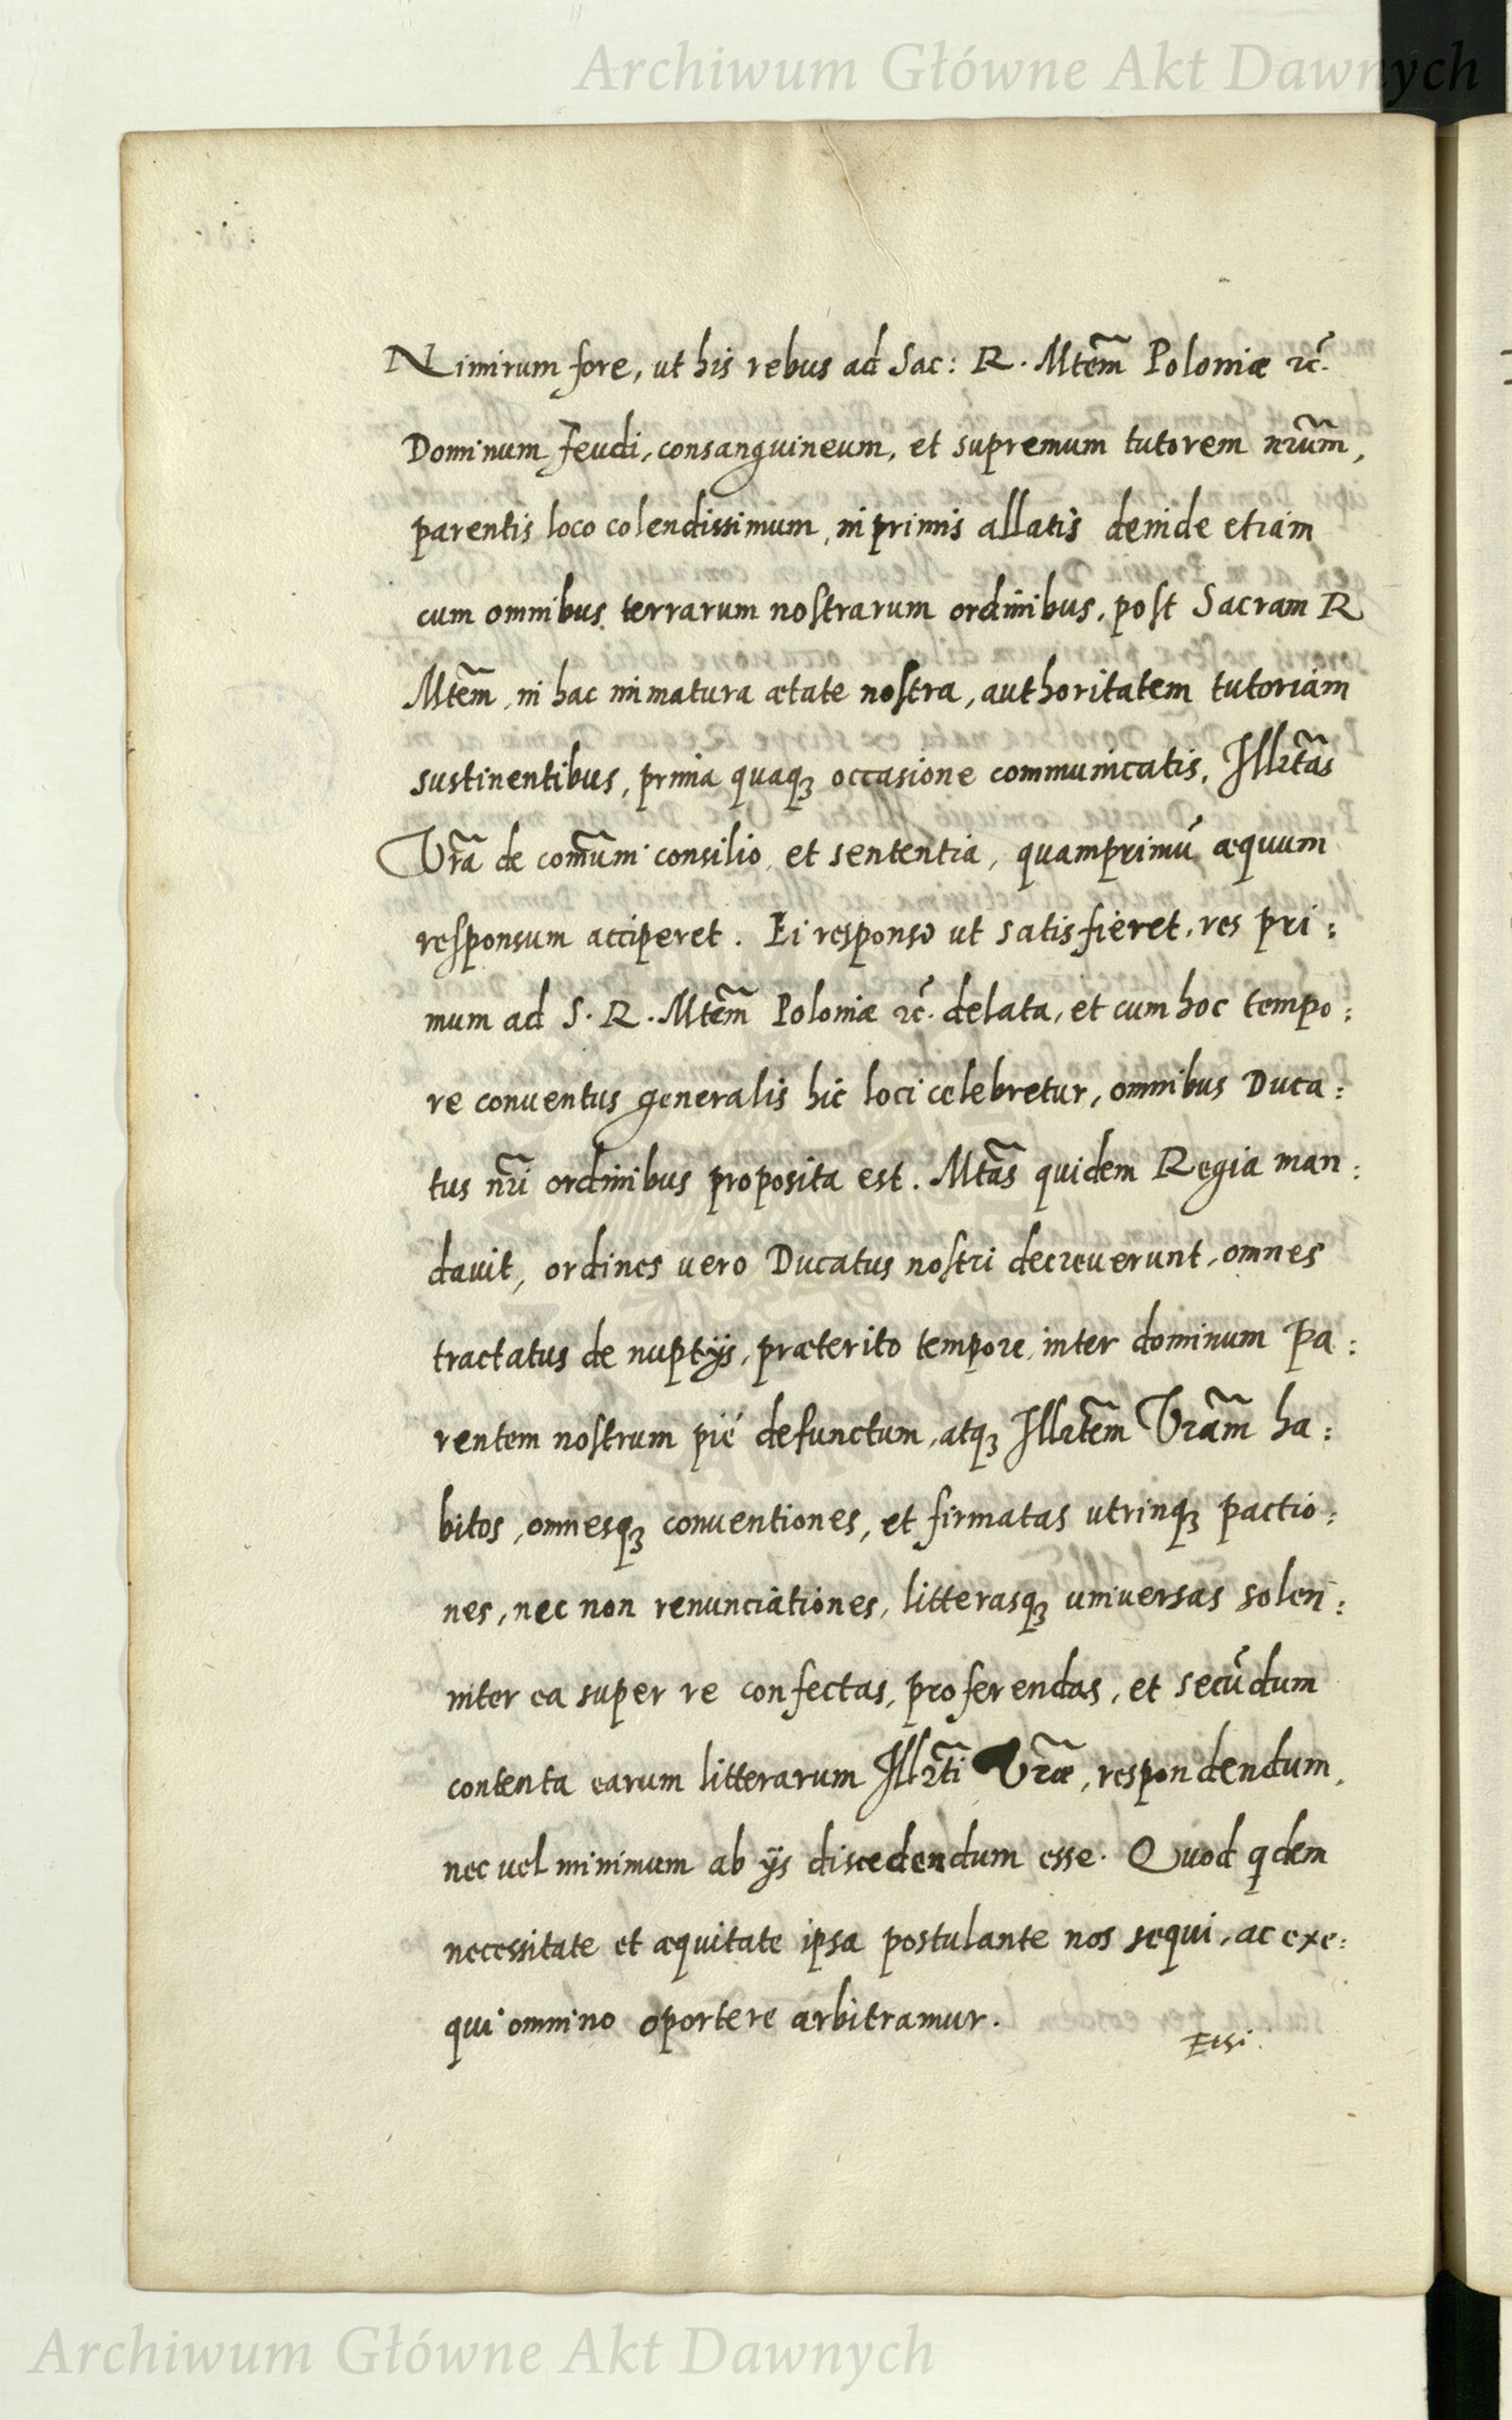 Archiwum Główne Akt Dawnych
Nimirum fore, ut his rebus ad Sac: R. Mtem̃ Poloniæ ꝛc̃.
Dominum feudi, consanguineum, et supremum tutorem nr̃um,
parentis loco colendissimum, inprimis allatis deinde etiam
cum omnibus terrarum nostrarum ordinibus, post Sacram R
Mtem̃, in hac immatura ætate nostra, authoritatem tutoriam
sustinentibus, prima quaqꝫ occasione communicatis, Illrt̃as
Vr̃a de com̃uni consilio, et sententia, quamprimũ æquum
responsum acciperet. Ei responso ut satisfieret, res pri:
mum ad S. R. Mtem̃ Poloniæ ꝛc̃. delata, et cum hoc tempo:
re conuentus generalis hic loci celebretur, omnibus Duca:
tus nr̃i ordinibus proposita est. Mtas̃ quidem Regia man:
dauit, ordines uero Ducatus nostri decreuerunt, omnes
tractatus de nuptijs, præterito tempore inter dominum Pa:
rentem nostrum pie defunctum, atqꝫ Illrtem̃ Vram̃ ha:
bitos, omnesqꝫ conuentiones, et firmatas utrinqꝫ pactio:
nes, nec non renunciationes, litterasqꝫ uniuersas solen:
niter ea super re confectas, proferendas, et secũdum
contenta earum litterarum Illrt̃i Vræ̃, respondendum,
nec uel minimum ab ijs discedendum esse. Quod qdem
necessitate et æquitate ipsa postulante nos sequi, ac exe:
qui omnino oportere arbitramur.
Etsi.
Archiwum Główne Akt Dawnych